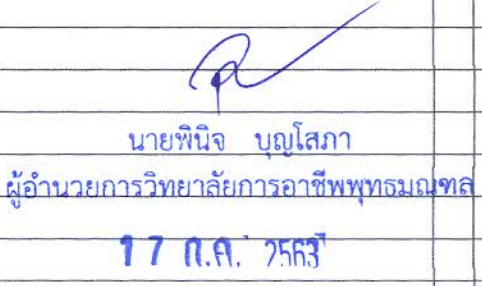 นายพินิจ บุญโสภา
ผู้อำนวยการวิทยาลัยการอาชีพพุทธมณฑล
17 ก.ค. 2563